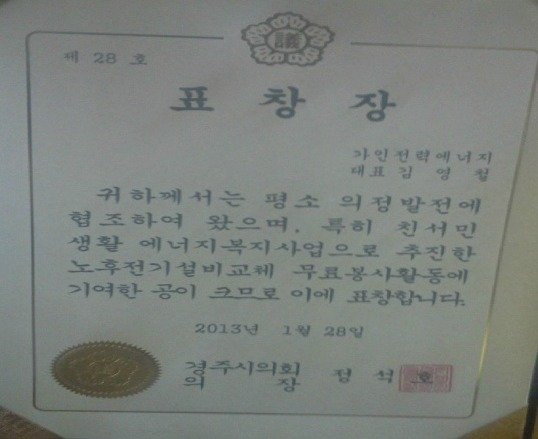 議
제 28 호
표 창 장
가인전력에너지
대표 김 영 철
귀하께서는 평소 의정발전에
협조하여 왔으며, 특히 친서민
생활 에너지복지사업으로 추진한
노후전기설비교체 무료봉사활동에
기여한 공이 크므로 이에 표창합니다.
2013년 1월 28일
경주시의회
의 장 정 석 호